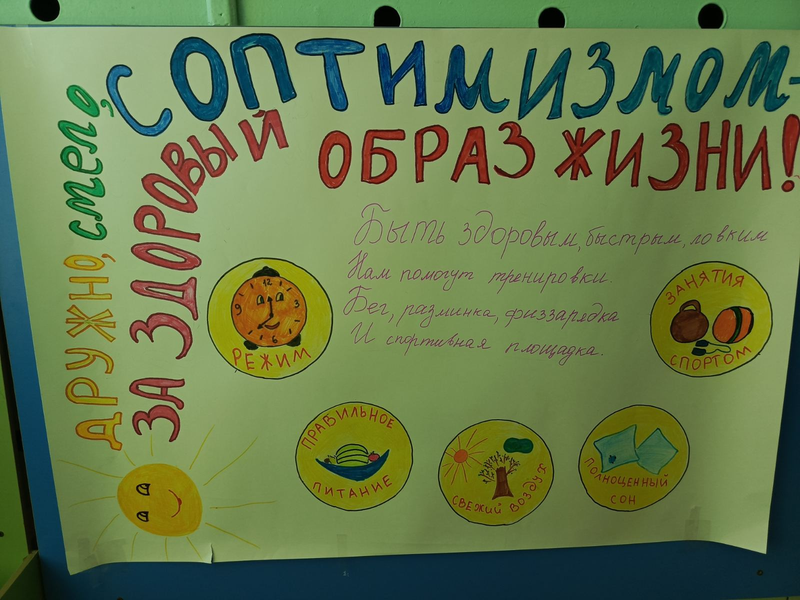 ДРУЖНО, СМЕЛО,
С ОПТИМИЗМОМ-
ЗА ЗДОРОВЫЙ
ОБРАЗ ЖИЗНИ!
Быть здоровым, быстрым, ловким
Нам помогут тренировки.
Бег, разминка, физзарядка
И спортивная площадка.
РЕЖИМ
ЗАНЯТИЯ
СПОРТОМ
ПРАВИЛЬНОЕ
ПИТАНИЕ
СВЕЖИЙ ВОЗДУХ
ПОЛНОЦЕННЫЙ
СОН